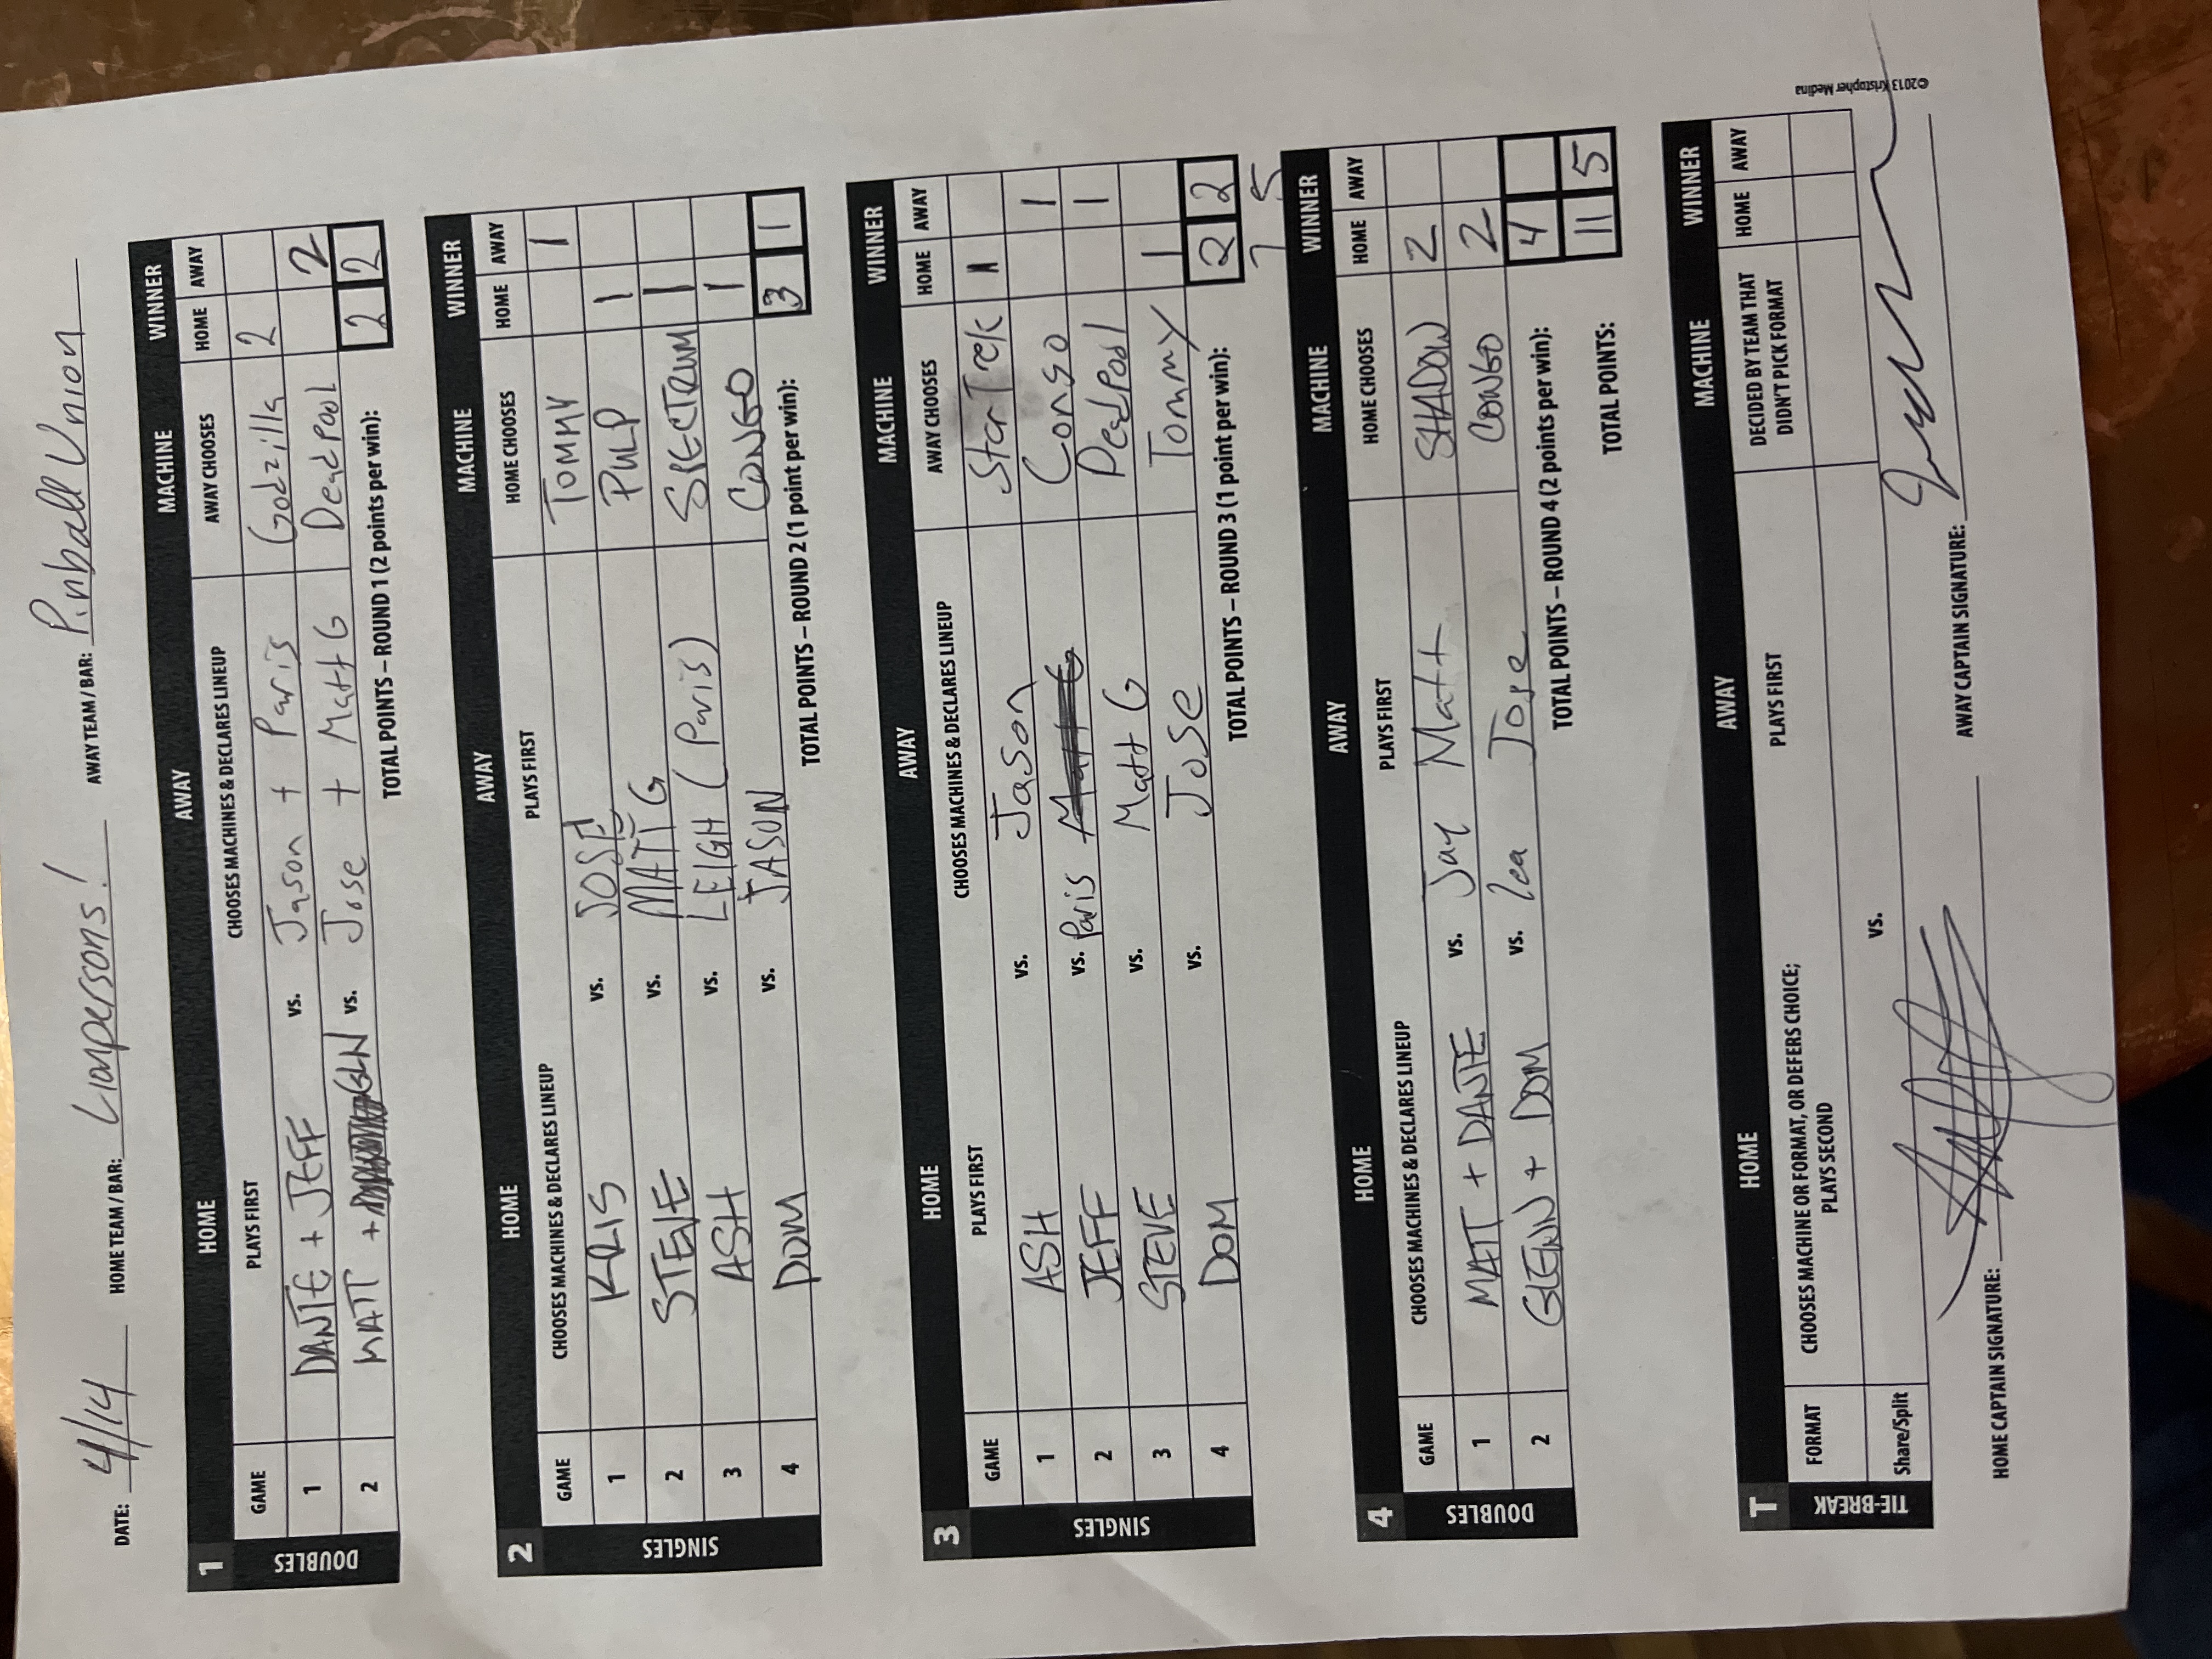 DATE: 4/14 HOME TEAM / BAR: Lionpersons! AWAY TEAM / BAR: Pinball Union
1 HOME AWAY MACHINE WINNER
GAME PLAYS FIRST CHOOSES MACHINES & DECLARES LINEUP AWAY CHOOSES HOME AWAY
DOUBLES
1 DANTE + JEFF vs. Jason + Paris Godzilla 2
2 MATT + GLN vs. Jose + Matt G Deadpool 2
TOTAL POINTS – ROUND 1 (2 points per win): 2 2
2 HOME AWAY MACHINE WINNER
GAME CHOOSES MACHINES & DECLARES LINEUP PLAYS FIRST HOME CHOOSES HOME AWAY
SINGLES
1 KRIS vs. JOSE TOMMY 1
2 STEVE vs. MATT G PULP 1
3 ASH vs. LEIGH (Paris) SPECTRUM 1
4 DOM vs. JASON CONGO 1
TOTAL POINTS – ROUND 2 (1 point per win): 3 1
3 HOME AWAY MACHINE WINNER
GAME PLAYS FIRST CHOOSES MACHINES & DECLARES LINEUP AWAY CHOOSES HOME AWAY
SINGLES
1 ASH vs. Jason Star Trek 1
2 JEFF vs. Paris Matt G Congo 1
3 STEVE vs. Matt G Deadpool 1
4 DOM vs. Jose Tommy 1
TOTAL POINTS – ROUND 3 (1 point per win): 2 2
7 5
4 HOME AWAY MACHINE WINNER
GAME CHOOSES MACHINES & DECLARES LINEUP PLAYS FIRST HOME CHOOSES HOME AWAY
DOUBLES
1 MATT + DANTE vs. Jay Matt SHADOW 2
2 GLENN + DOM vs. lea Jose CONGO 2
TOTAL POINTS – ROUND 4 (2 points per win): 4
TOTAL POINTS: 11 5
T HOME AWAY MACHINE WINNER
FORMAT CHOOSES MACHINE OR FORMAT, OR DEFERS CHOICE; PLAYS SECOND PLAYS FIRST DECIDED BY TEAM THAT DIDN'T PICK FORMAT HOME AWAY
TIE-BREAK
Share/Split vs.
HOME CAPTAIN SIGNATURE: AWAY CAPTAIN SIGNATURE:
©2013 Kristopher Medina